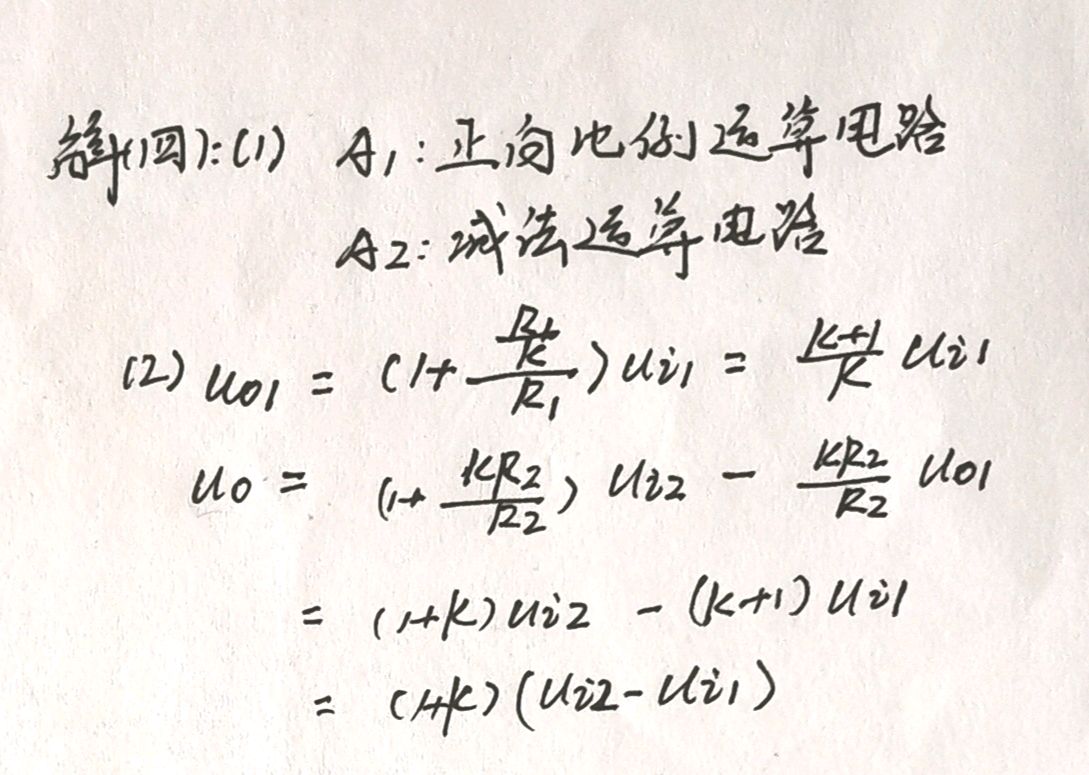 解(四):(1) A1:正向比例运算电路
A2:减法运算电路
(2) uo1 = (1+ (R1/K)/R1) ui1 = (K+1)/K ui1
uo = (1+ KR2/R2) ui2 - KR2/R2 uo1
= (1+K) ui2 - (K+1) ui1
= (1+K) (ui2 - ui1)